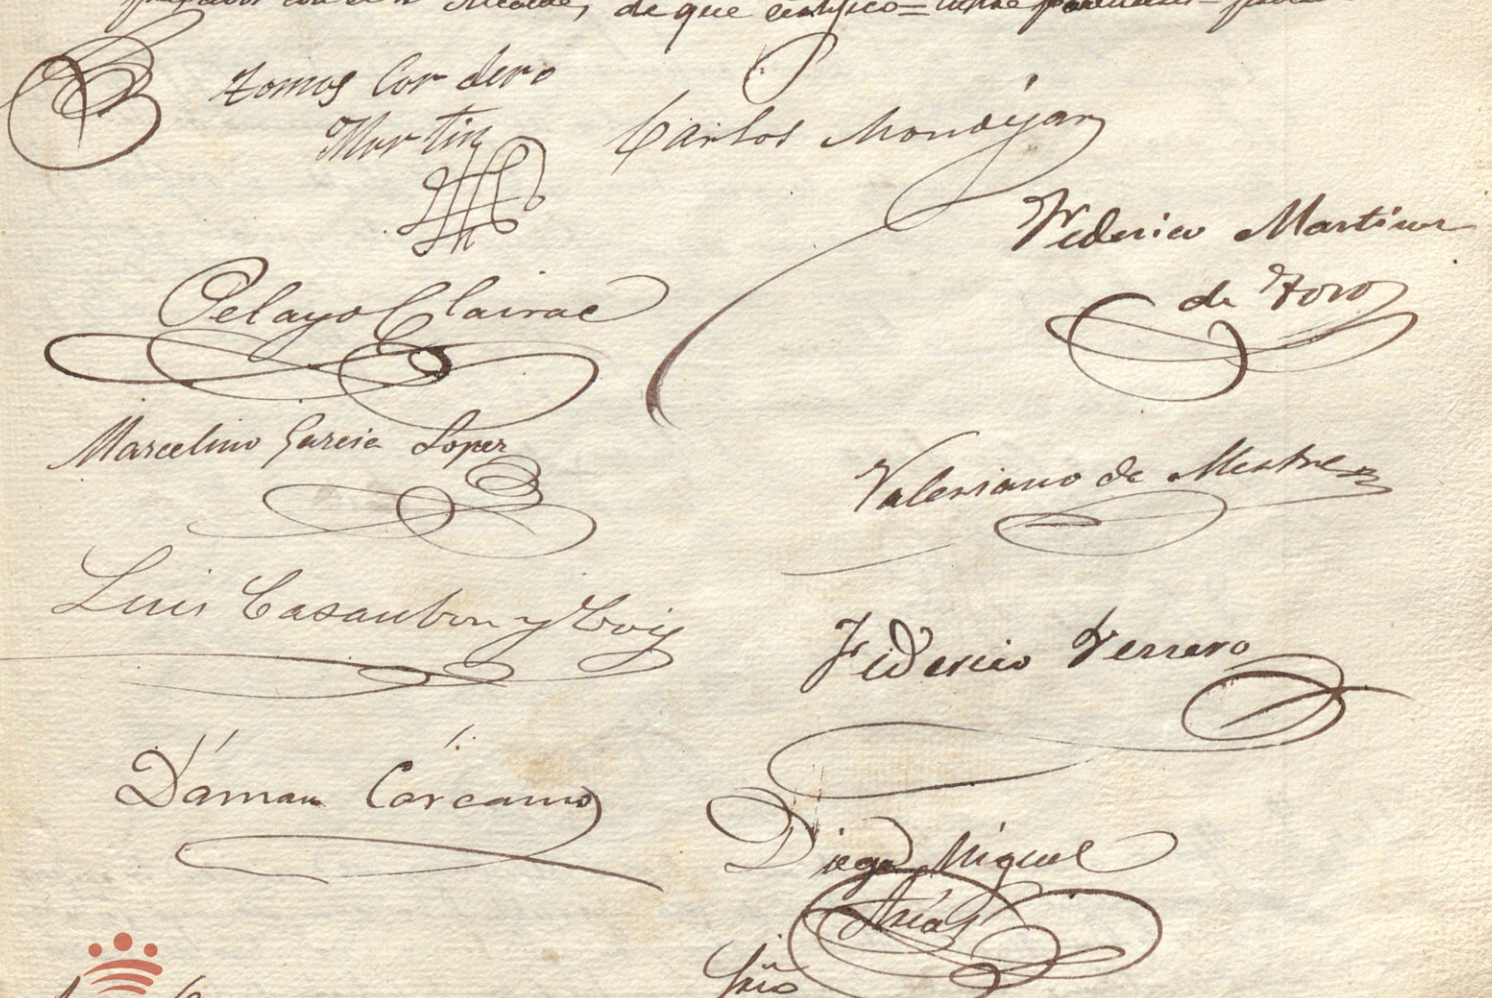 de que certifico=
Tomas Cordero
Martin
Carlos Mondéjar
Federico Martinez
de Toro
Pelayo Clairac
Marcelino Garcia Lopez
Valeriano de Mestre
Luis Casaubon y Coig
Federico Ferrero
Dámaso Cárcamo
Diego Miguel
Arias